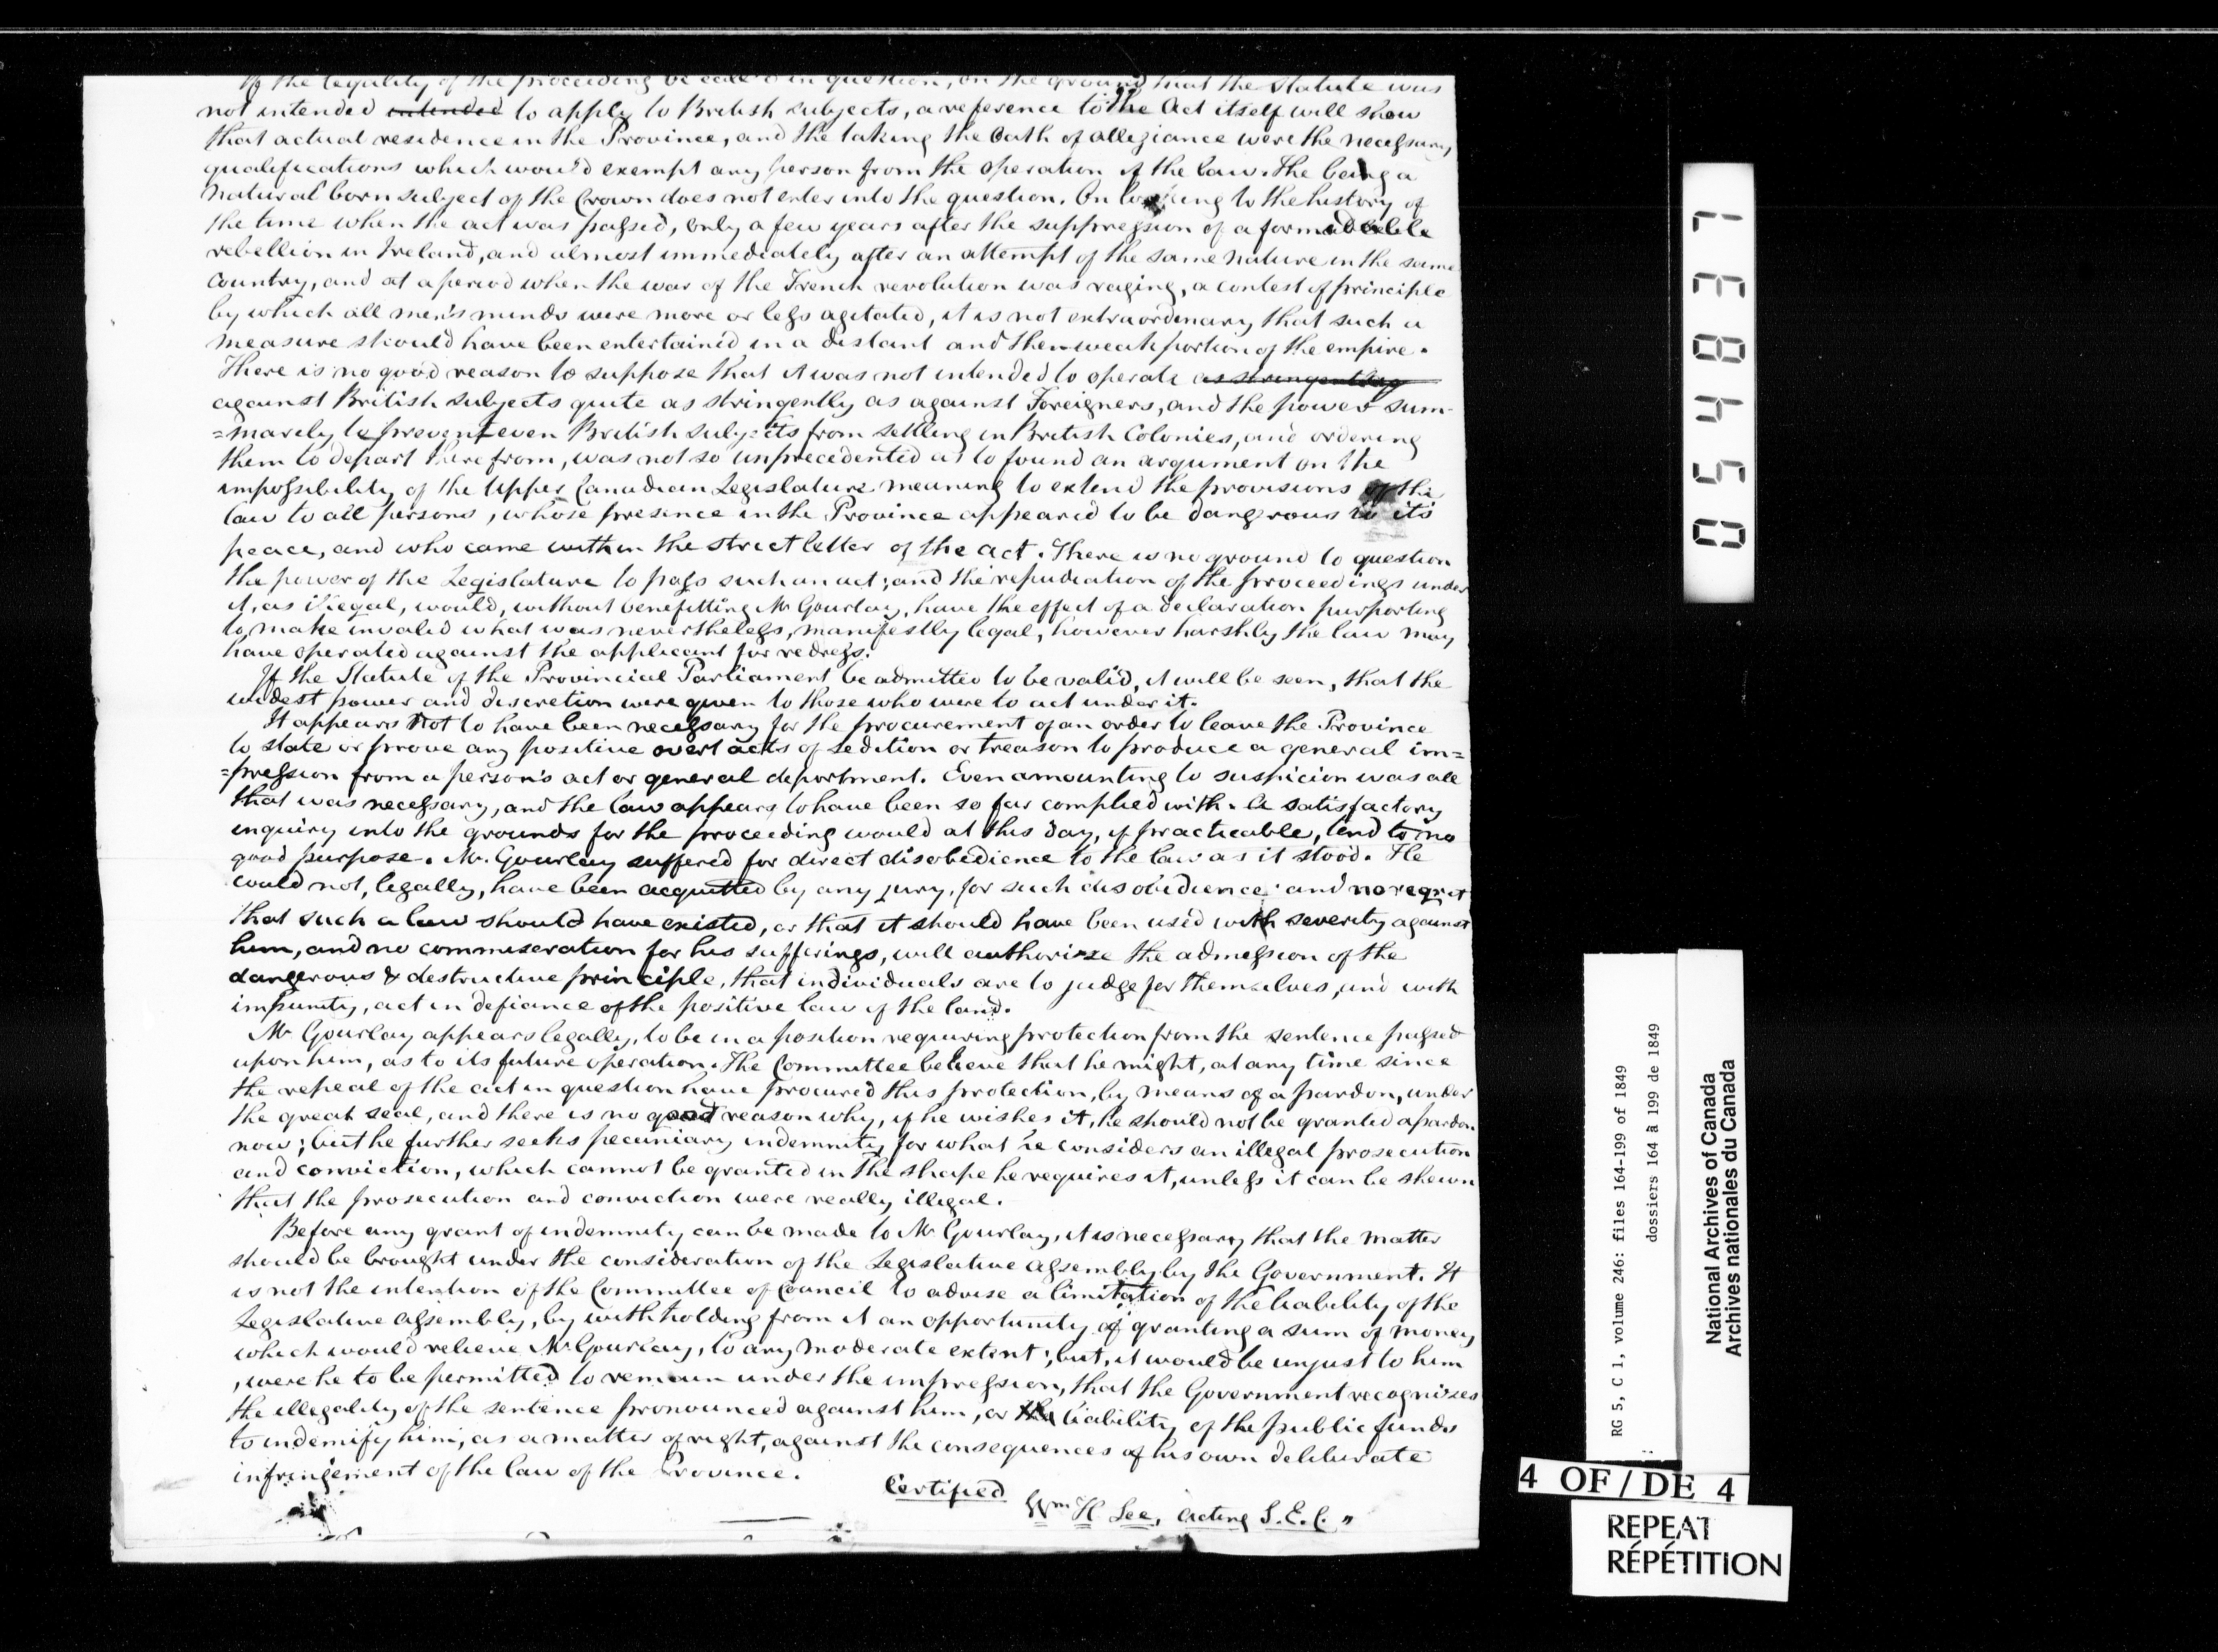 If the legality of the proceeding be call'd in question, on the ground that the Statute was
not intended intended to apply to British subjects, a reference to the Act itself will show
that actual residence in the Province, and the taking the Oath of allegiance were the necessary
qualifications which would exempt any person from the operation of the law. The being a
Natural born subject of the Crown does not enter into the question. On looking to the history of
the time when the act was passed, only a few years after the suppression of a formidable
rebellion in Ireland, and almost immediately after an attempt of the same nature in the same
Country, and at a period when the war of the French revolution was raging, a contest of principle
by which all men's minds were more or less agitated, it is not extraordinary that such a
measure should have been entertained in a distant and then weak portion of the empire.
There is no good reason to suppose that it was not intended to operate as stringently
against British subjects quite as stringently as against Foreigners, and the power sum-
=marely to prevent even British subjects from settling in British Colonies, and ordering
them to depart therefrom, was not so unprecedented as to found an argument on the
impossibility of the Upper Canadian Legislature meaning to extend the provisions of the
law to all persons, whose presence in the Province appeared to be dangerous to its
peace, and who came within the strict letter of the act. There is no ground to question
the power of the Legislature to pass such an act; and the repudiation of the proceedings under
it, as illegal, would, without benefitting Mr Gourlay, have the effect of a declaration purporting
to make invalid what was nevertheless, manifestly legal, however harshly the law may
have operated against the applicant for redress.
If the Statute of the Provincial Parliament be admitted to be valid, it will be seen, that the
widest power and discretion were given to those who were to act under it.
It appears Not to have been necessary for the procurement of an order to leave the Province
to state or prove any positive overt acts of sedition or treason to produce a general im=
=pression from a person's act or general deportment. Even amounting to suspicion was all
that was necessary, and the law appears to have been so far complied with. A satisfactory
inquiry into the grounds for the proceeding would at this day, if practicable, tend to no
good purpose. Mr. Gourlay suffered for direct disobedience to the law as it stood. He
could not, legally, have been acquitted by any jury, for such disobedience; and no regret
that such a law should have existed, or that it should have been used with severity against
him, and no commiseration for his sufferings, will authorize the admission of the
dangerous & destructive principle, that individuals are to judge for themselves, and with
impunity, act in defiance of the positive law of the land.
Mr Gourlay appears legally, to be in a position requiring protection from the sentence passed
upon him, as to its future operation. The Committee believe that he might, at any time since
the repeal of the act in question have procured this protection, by means of a pardon, under
the great seal, and there is no good reason why, if he wishes it, he should not be granted a pardon
now; but he further seeks pecuniary indemnity for what he considers an illegal prosecution
and conviction, which cannot be granted in the shape he requires it, unless it can be shewn
that the prosecution and conviction were really illegal.
Before any grant of indemnity can be made to Mr Gourlay, it is necessary that the matter
should be brought under the consideration of the Legislative Assembly by the Government. It
is not the intention of the Committee of Council to advise a limitation of the liability of the
Legislative Assembly, by withholding from it an opportunity of granting a sum of money
which would relieve Mr Gourlay, to any moderate extent; but, it would be unjust to him
, were he to be permitted to remain under the impression, that the Government recognises
the illegality of the sentence pronounced against him, or the liability of the public funds
to indemnify him, as a matter of right, against the consequences of his own deliberate
infringement of the law of the Province.
Certified
Wm H Lee, Acting S.E.C. "
054837
RG 5, C 1, volume 246: files 164-199 of 1849
dossiers 164 à 199 de 1849
National Archives of Canada
Archives nationales du Canada
4 OF/DE 4
REPEAT
RÉPÉTITION